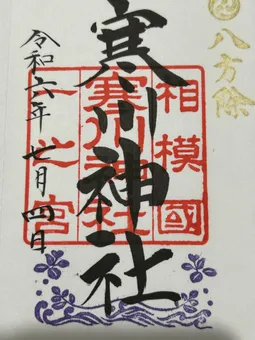 八方除
相模國
寒川神社
一之宮
寒川神社
令和六年七月四日